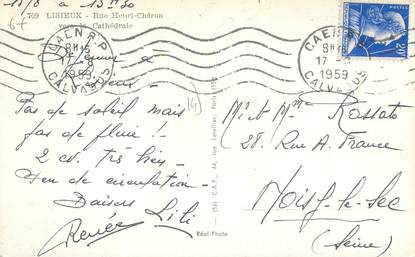 15/8 à 15h30
67
709 LISIEUX - Rue Henri-Chéron
vers la Cathédrale
CAEN R.P.
17 - 8
1959
CALVADOS
CAEN
17 -
1959
CALVADOS
20F
POSTES
Pas de soleil mais
pas de pluie !
2 cv. très bien -
Peu de circulation -
Baisers Lili
Renée
14
(56) C.A.P., 44, rue Letellier, Paris (15e)
Réel-Photo
Mr et Mme Rossato
28. Rue A. France
Noisy-le-Sec
(Seine)